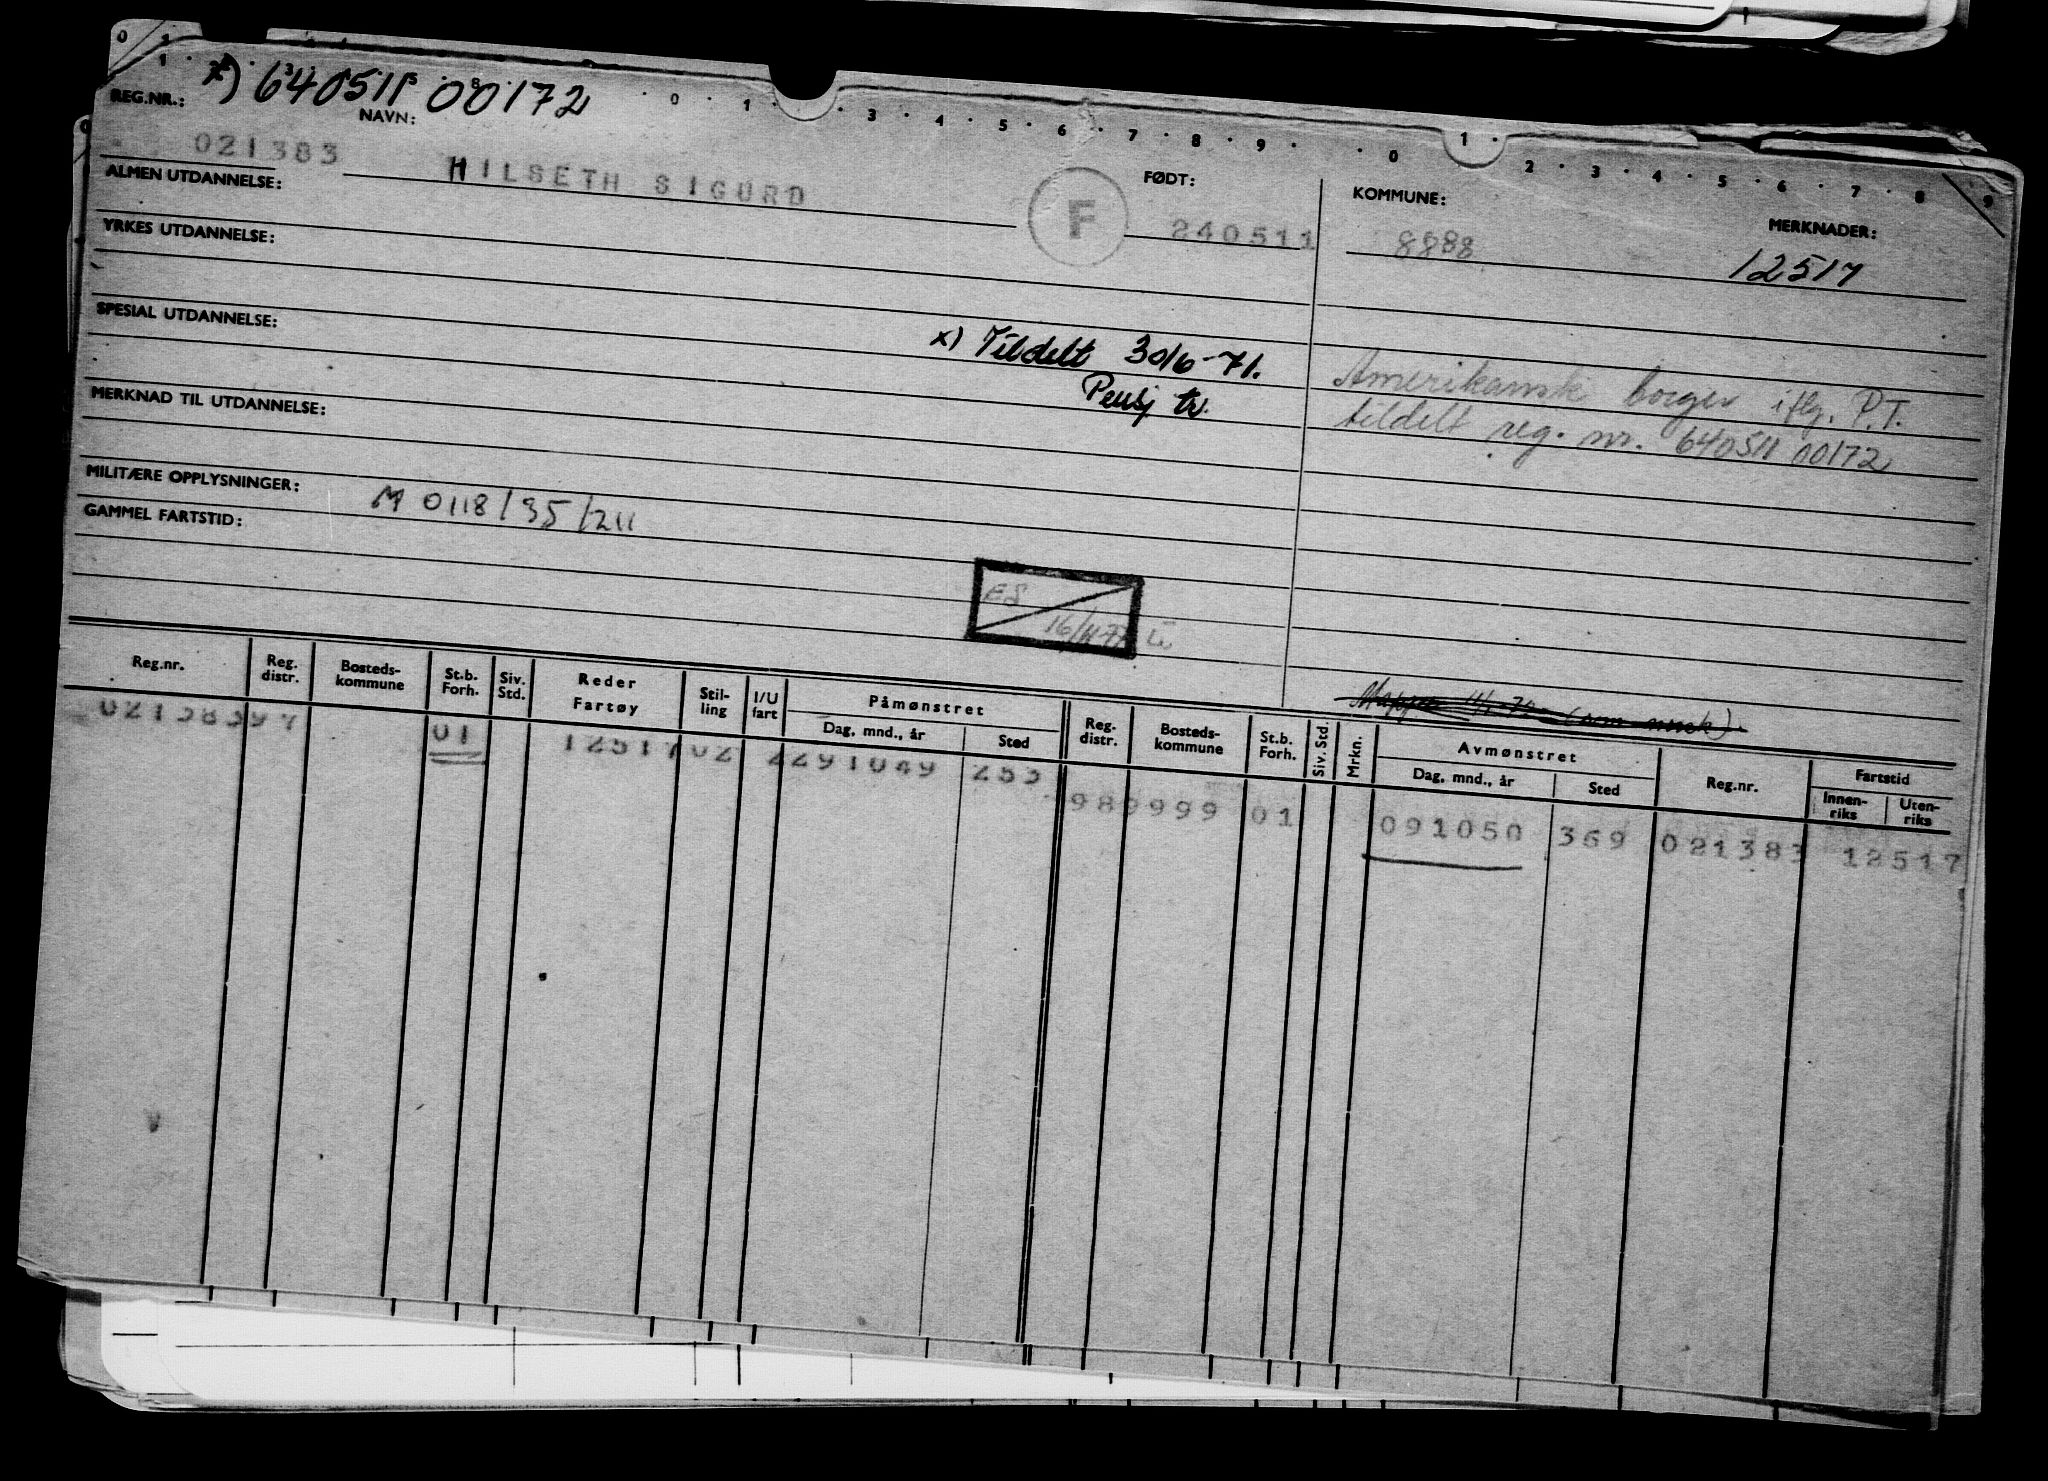 x) 640511 00172
REG.NR.: NAVN:
021383 HILSETH SIGURD
F
FØDT:
240511
KOMMUNE:
8888
MERKNADER:
12517
ALMEN UTDANNELSE:
YRKES UTDANNELSE:
SPESIAL UTDANNELSE:
x) Tildelt 30/6-71.
Pensj tr.
Amerikansk borger iflg. P.T.
tildelt reg. nr. 640511 00172
MERKNAD TIL UTDANNELSE:
MILITÆRE OPPLYSNINGER: M 0118/35/211
GAMMEL FARTSTID:
ES
Reg.nr. Reg. distr. Bosteds-kommune St.b. Forh. Siv. Std. Reder Fartøy Stil-ling I/U fart Påmønstret Dag, mnd., år Sted Reg. distr. Bosteds-kommune St.b. Forh. Siv. Std. Mrkn. Avmønstret Dag, mnd., år Sted Reg.nr. Fartstid Innen-riks Uten-riks
01 1251702 2291049 253 989999 01 091050 369 021383 12517